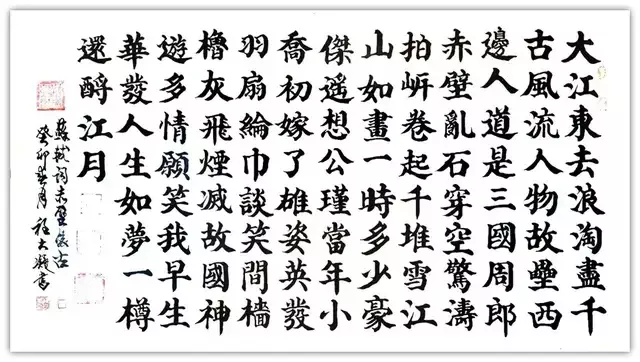 大江東去浪淘盡千
古風流人物故壘西
邊人道是三國周郎
赤壁亂石穿空驚濤
拍岍卷起千堆雪江
山如畫一時多少豪
傑遙想公瑾當年小
喬初嫁了雄姿英發
羽扇綸巾談笑間檣
櫓灰飛煙滅故國神
遊多情願笑我早生
華發人生如夢一樽
還酹江月
蘇軾詞赤壁懷古
癸卯春月程大書